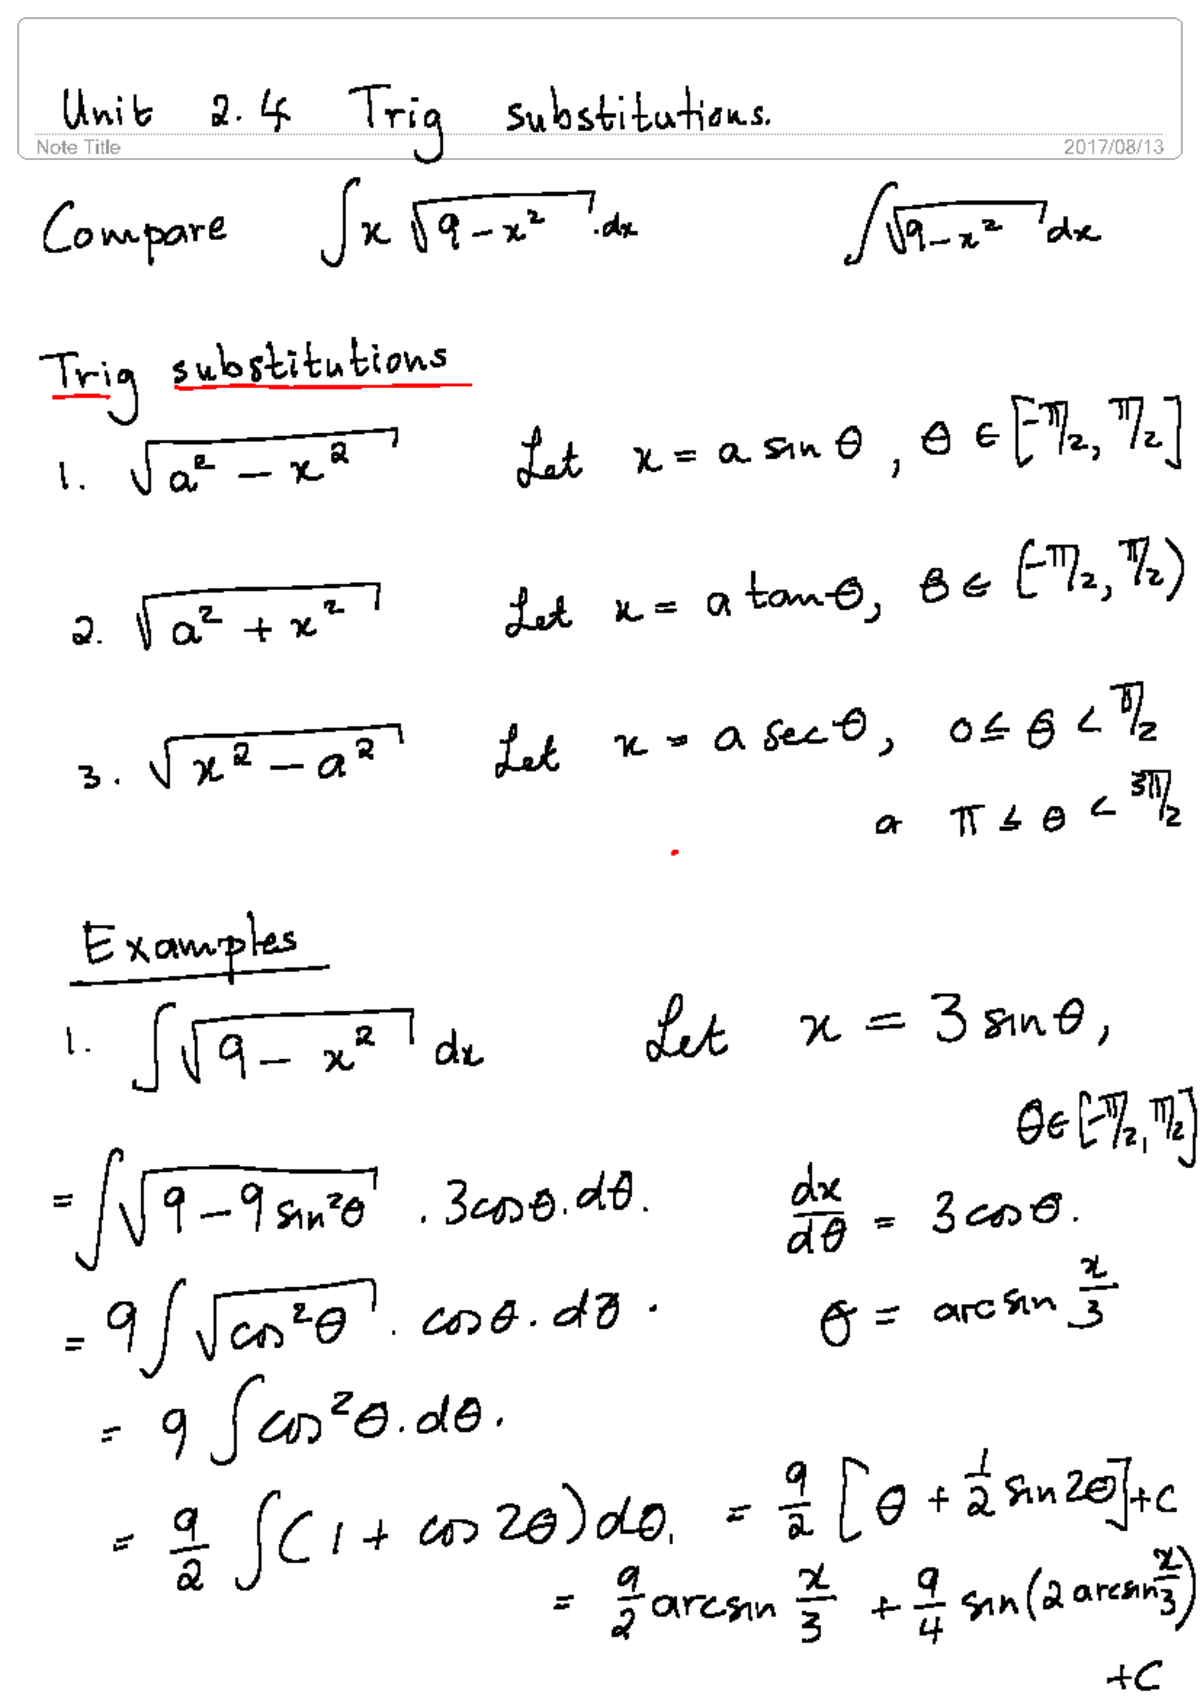 Unit 2.4 Trig substitutions.
Note Title 2017/08/13
Compare ∫ x √(9 − x²) .dx ∫ √(9 − x²) dx
Trig substitutions
1. √(a² − x²) Let x = a sin θ, θ ∈ [-π/2, π/2]
2. √(a² + x²) Let x = a tan θ, θ ∈ (-π/2, π/2)
3. √(x² − a²) Let x = a sec θ, 0 ≤ θ < π/2
or π ≤ θ < 3π/2
Examples
1. ∫ √(9 − x²) dx Let x = 3 sin θ,
θ ∈ [-π/2, π/2]
= ∫ √(9 − 9 sin²θ) . 3cos θ. dθ. dx/dθ = 3 cos θ.
= 9 ∫ √(cos²θ) . cos θ. dθ. θ = arcsin x/3
= 9 ∫ cos²θ. dθ.
= 9/2 ∫ (1 + cos 2θ) dθ. = 9/2 [θ + 1/2 sin 2θ] + C
= 9/2 arcsin x/3 + 9/4 sin(2 arcsin x/3)
+C